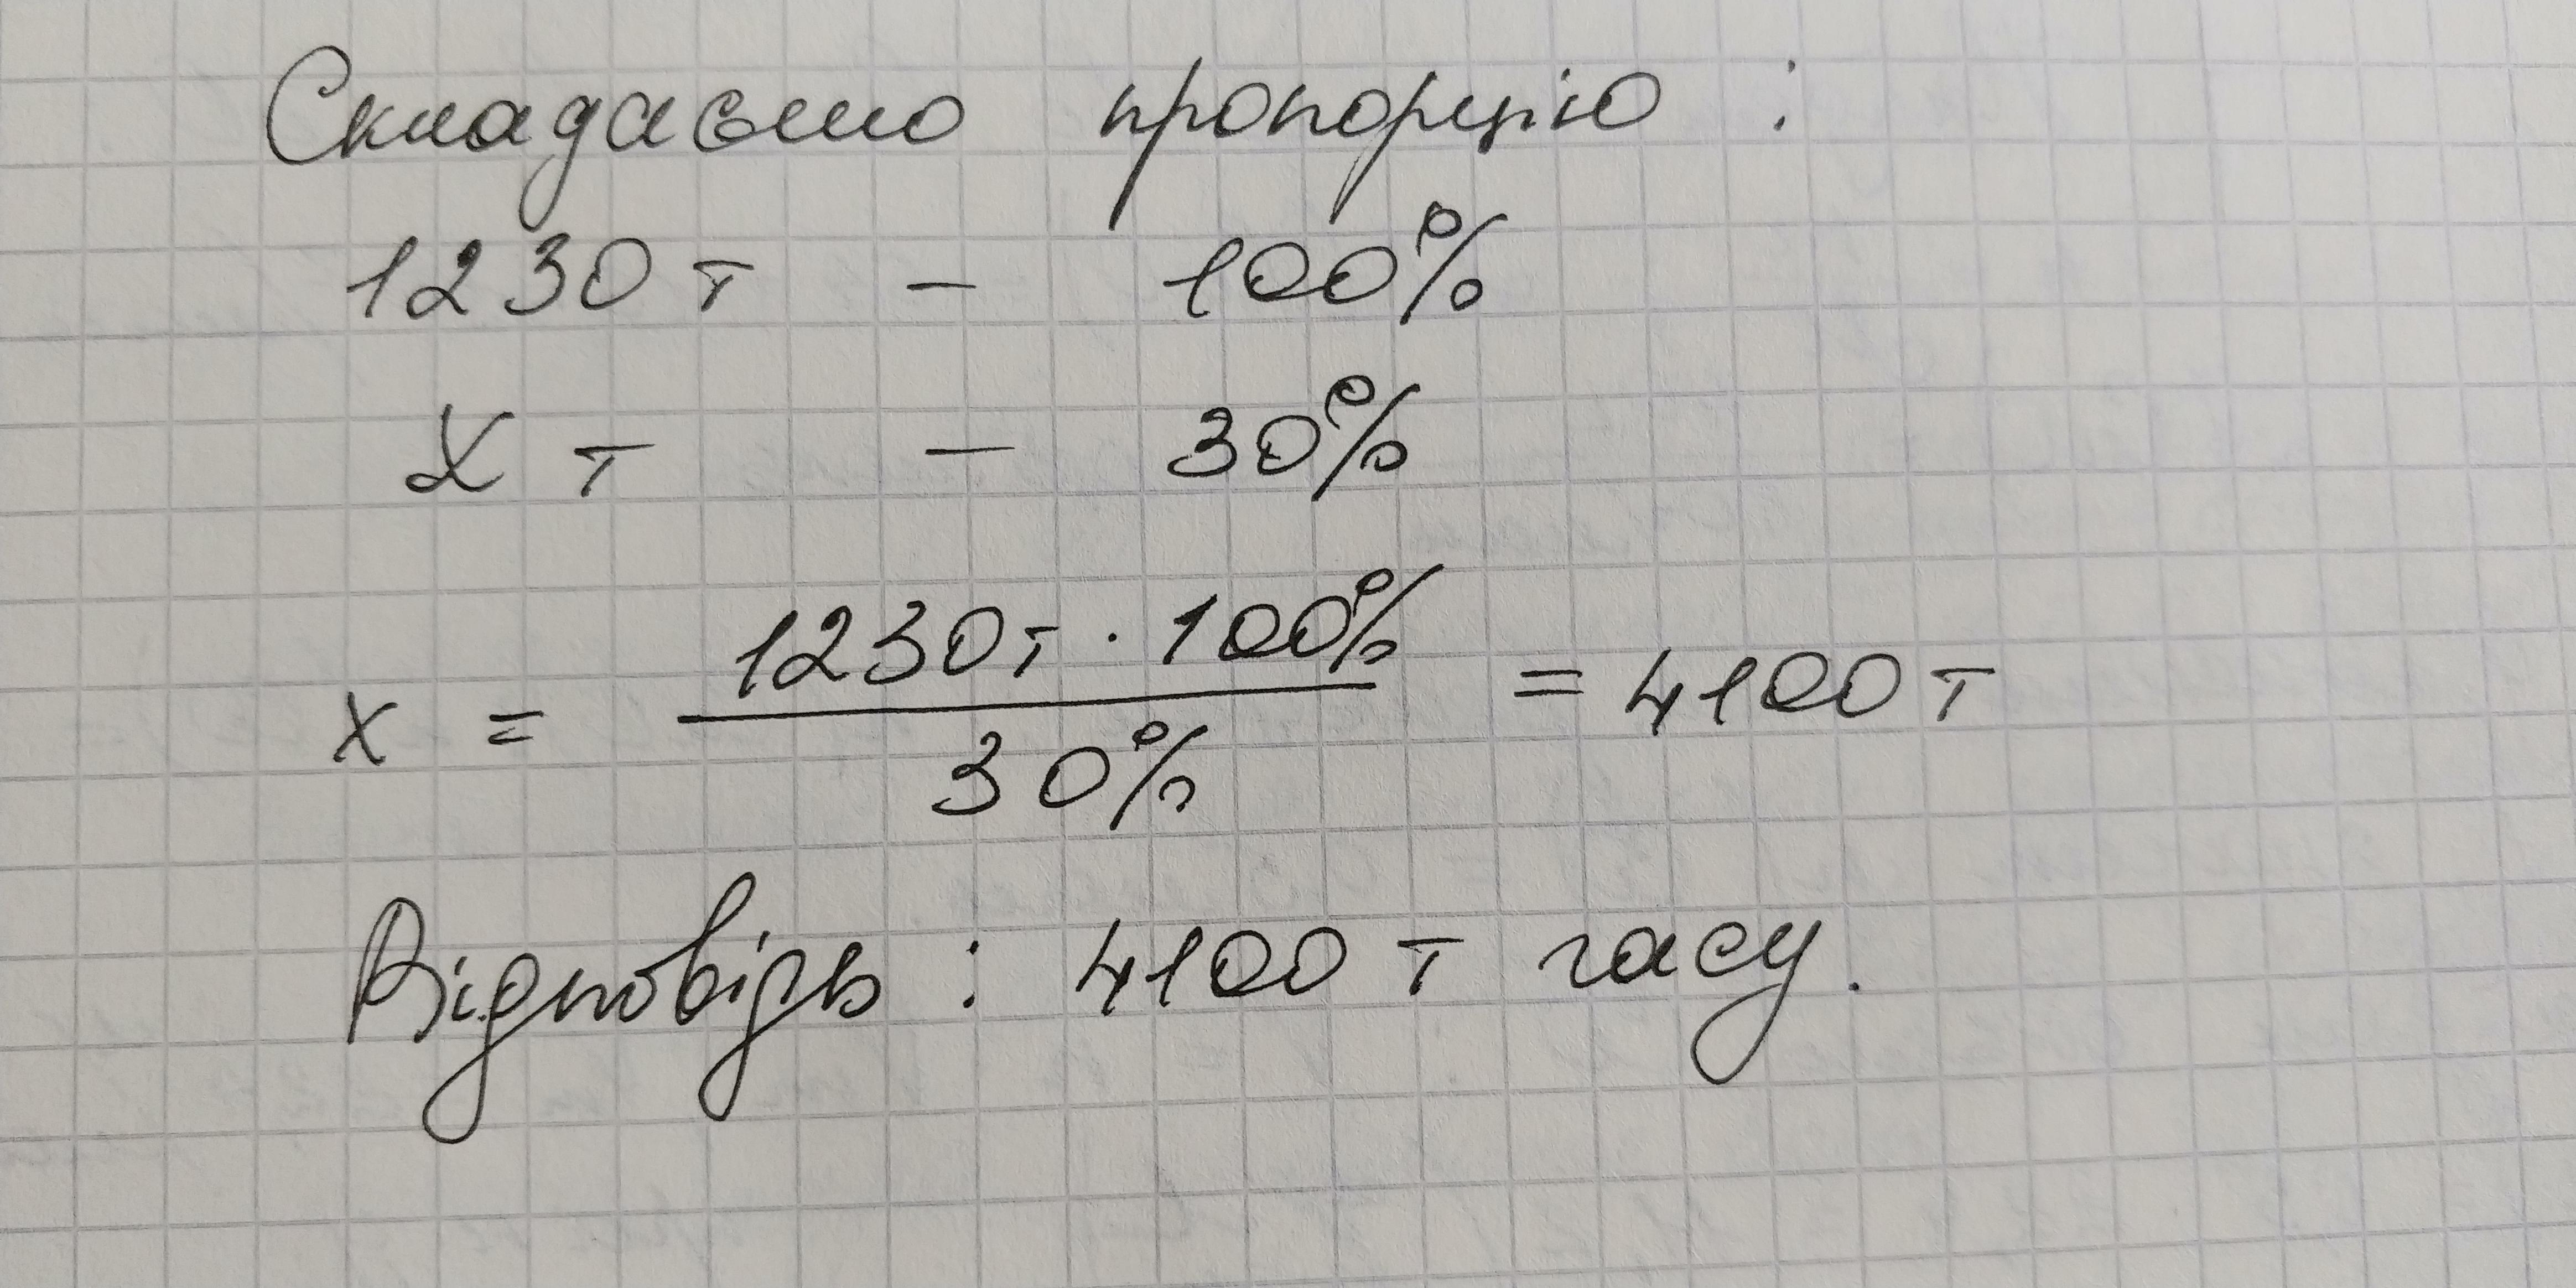 Складаємо пропорцію :
1230 т - 100%
X т - 30%
x = 1230т · 100% / 30% = 4100 т
Відповідь : 4100 т гасу.